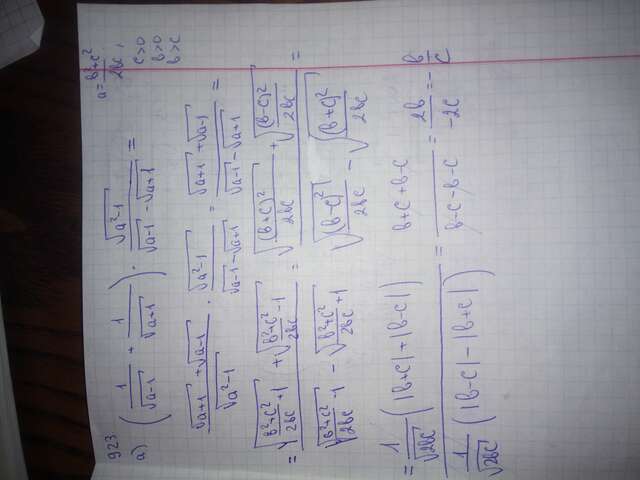 923
a) (1/√(a-1) + 1/√(a+1)) · √(a²-1)/(√(a-1) - √(a+1)) =
a = (b²+c²)/2bc,
c>0
b>0
b>c
(√(a+1) + √(a-1))/√(a²-1) · √(a²-1)/(√(a-1) - √(a+1)) = (√(a+1) + √(a-1))/(√(a-1) - √(a+1)) =
= (√((b²+c²)/2bc + 1) + √((b²+c²)/2bc - 1))/(√((b²+c²)/2bc - 1) - √((b²+c²)/2bc + 1)) = (√((b+c)²/2bc) + √((b-c)²/2bc))/(√((b-c)²/2bc) - √((b+c)²/2bc)) =
= (1/√2bc (|b+c| + |b-c|))/(1/√2bc (|b-c| - |b+c|)) = (b+c+b-c)/(b-c-b-c) = 2b/-2c = -b/c